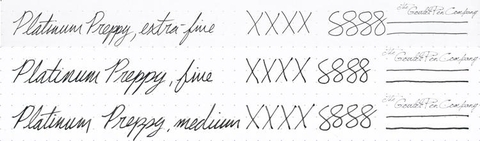 Platinum Preppy, extra-fine XXXX 8888 The Goulet Pen Company
Platinum Preppy, fine XXXX 8888 The Goulet Pen Company
Platinum Preppy, medium XXXX 8888 The Goulet Pen Company